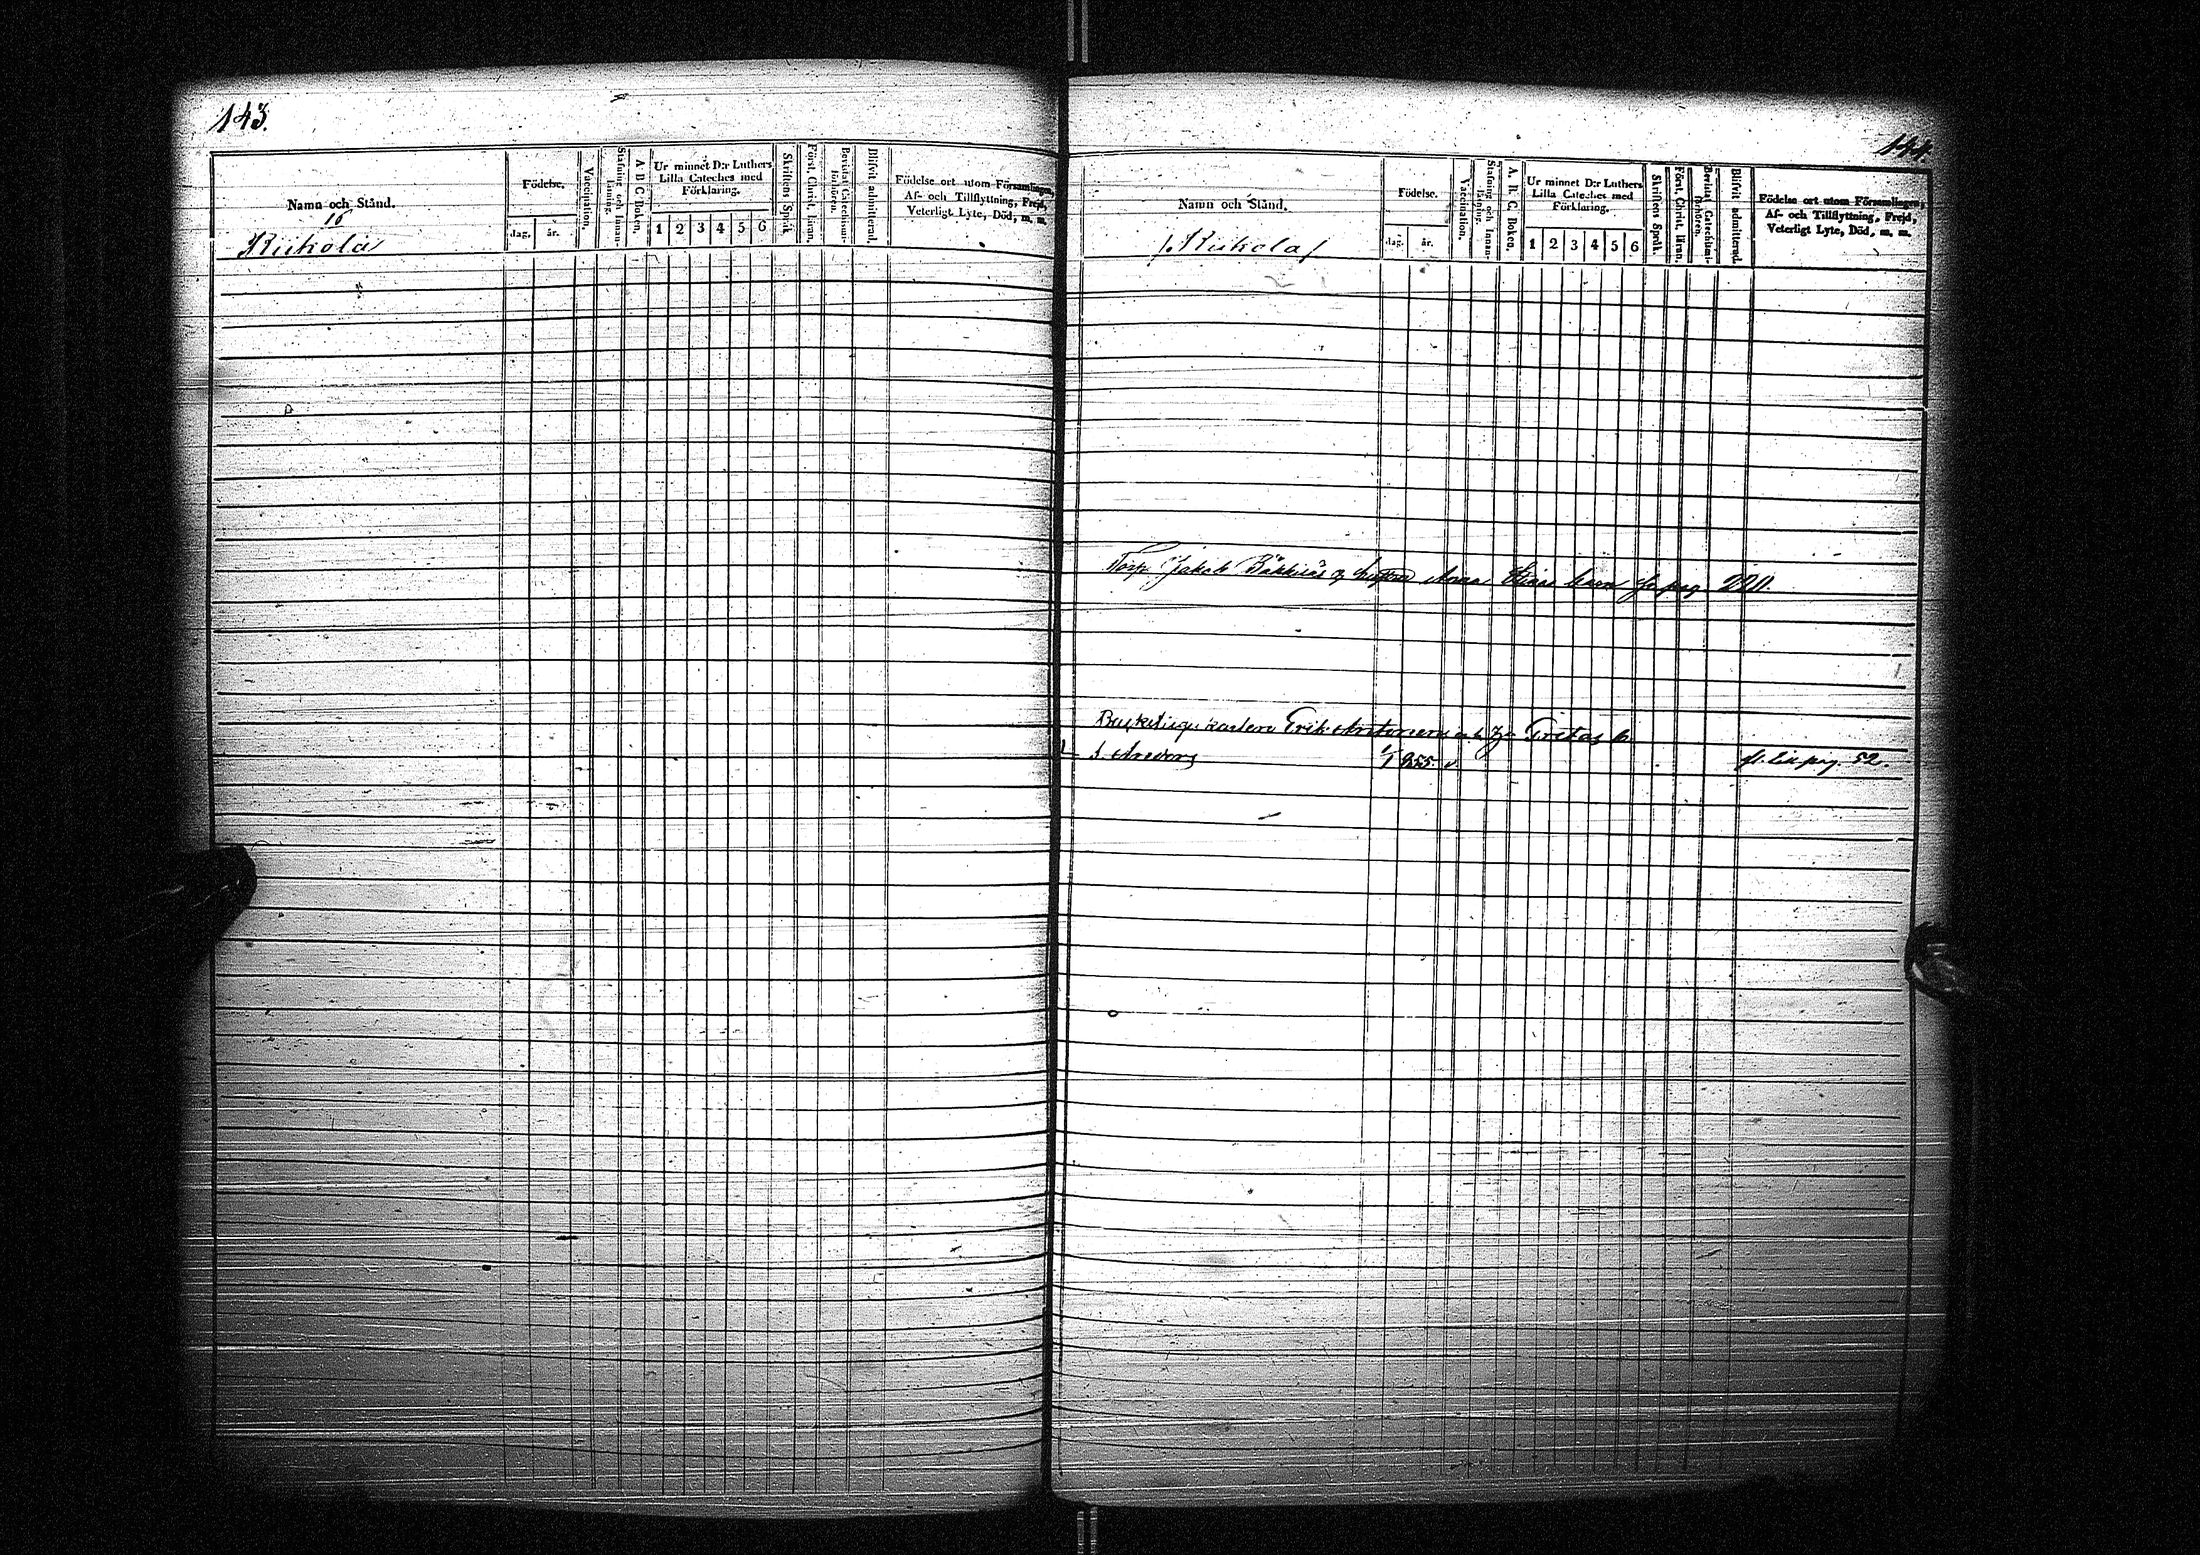 143.
Namn och Stånd.
16
Kiikola
Födelse.
dag. år.
Vaccination.
Stafning och Innanläsning.
A B C Boken.
Ur minnet D:r Luthers
Lilla Cateches med
Förklaring.
1 2 3 4 5 6
Skriftens Språk
Först. Christ. läran.
Bevistat Catechismiförhören.
Blifvit admitterad.
Födelse ort utom Församlingen,
Af- och Tillflyttning, Frejd,
Veterligt Lyte, Död, m. m.
144.
Namn och Stånd.
/Kiikola/
Födelse.
dag. år.
Vaccination.
Stafning och Innanläsning.
A. B. C. Boken.
Ur minnet D:r Luthers
Lilla Cateches med
Förklaring.
1 2 3 4 5 6
Skriftens Språk.
Först. Christ. läran.
Bevistat Catechismiförhören.
Blifvit admitterad.
Födelse ort utom Församlingen,
Af- och Tillflyttning, Frejd,
Veterligt Lyte, Död, m. m.
Torp. Jakob Anna Stinas barn pag. 220.
karlen Erik Gretas b.
1/1 855. v. pag. 52.